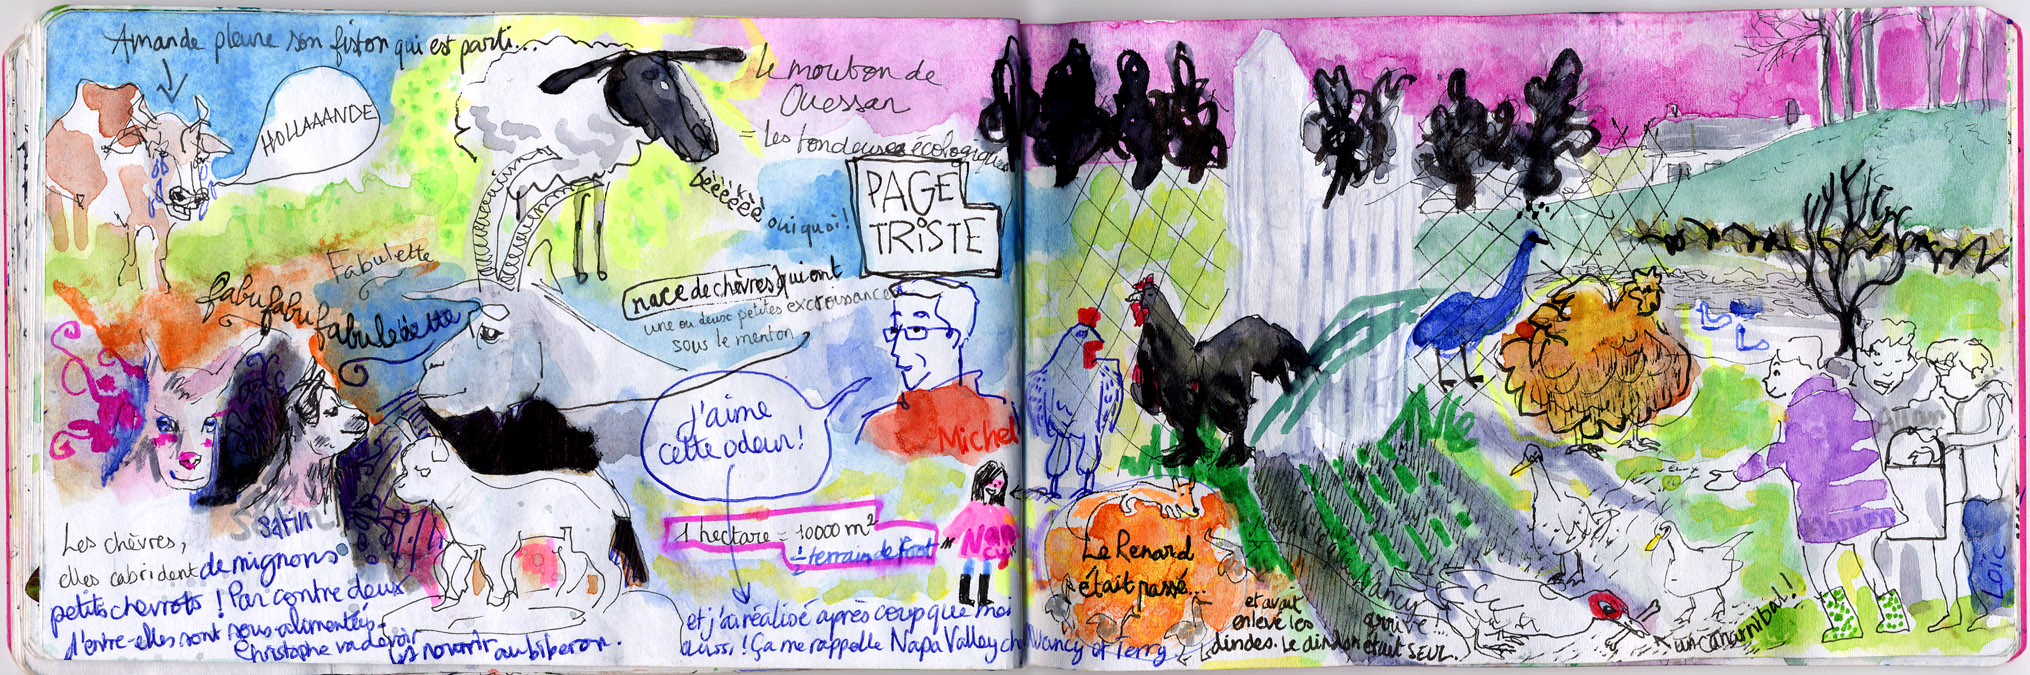 Amande pleure son fiston qui est parti...
HOLLAAANDE
Le mouton de
Ouessan
= Les tondeuses écologiques
bèèèèèè
oui quoi !
PAGE
TRiSTE
Fabulette
fabu fabu fabuleëette
race de chèvres qui ont
une ou deux petites excroissances
sous le menton
J'aime
cette odeur !
Michel
Satin
1 hectare = 10000 m²
1/2 terrain de Foot
Nancy
Les chèvres,
elles cabrident de mignons
petits chevrots ! Par contre deux
d'entre-elles sont sous-alimentées.
Christophe va devoir
les nourrir au biberon.
et j'ai réalisé après coup que moi
aussi ! Ça me rappelle Napa Valley chez Nancy et Terry
Le Renard
était passé...
et avait
enlevé les
dindes. Le dindon était SEUL.
Nancy
arrive !
un canarnibal !
Alan
Manon
Loïc